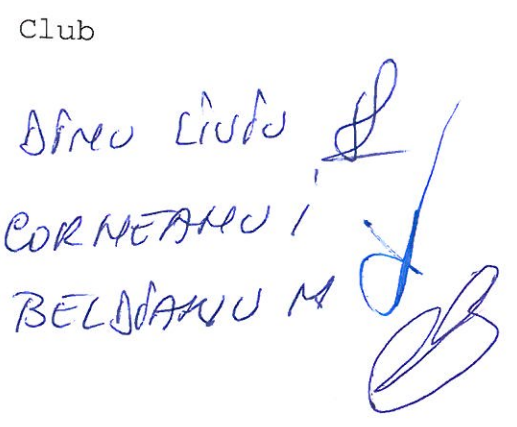 Club
DINU LIVIU
CORNEANU I
BELDIANU M